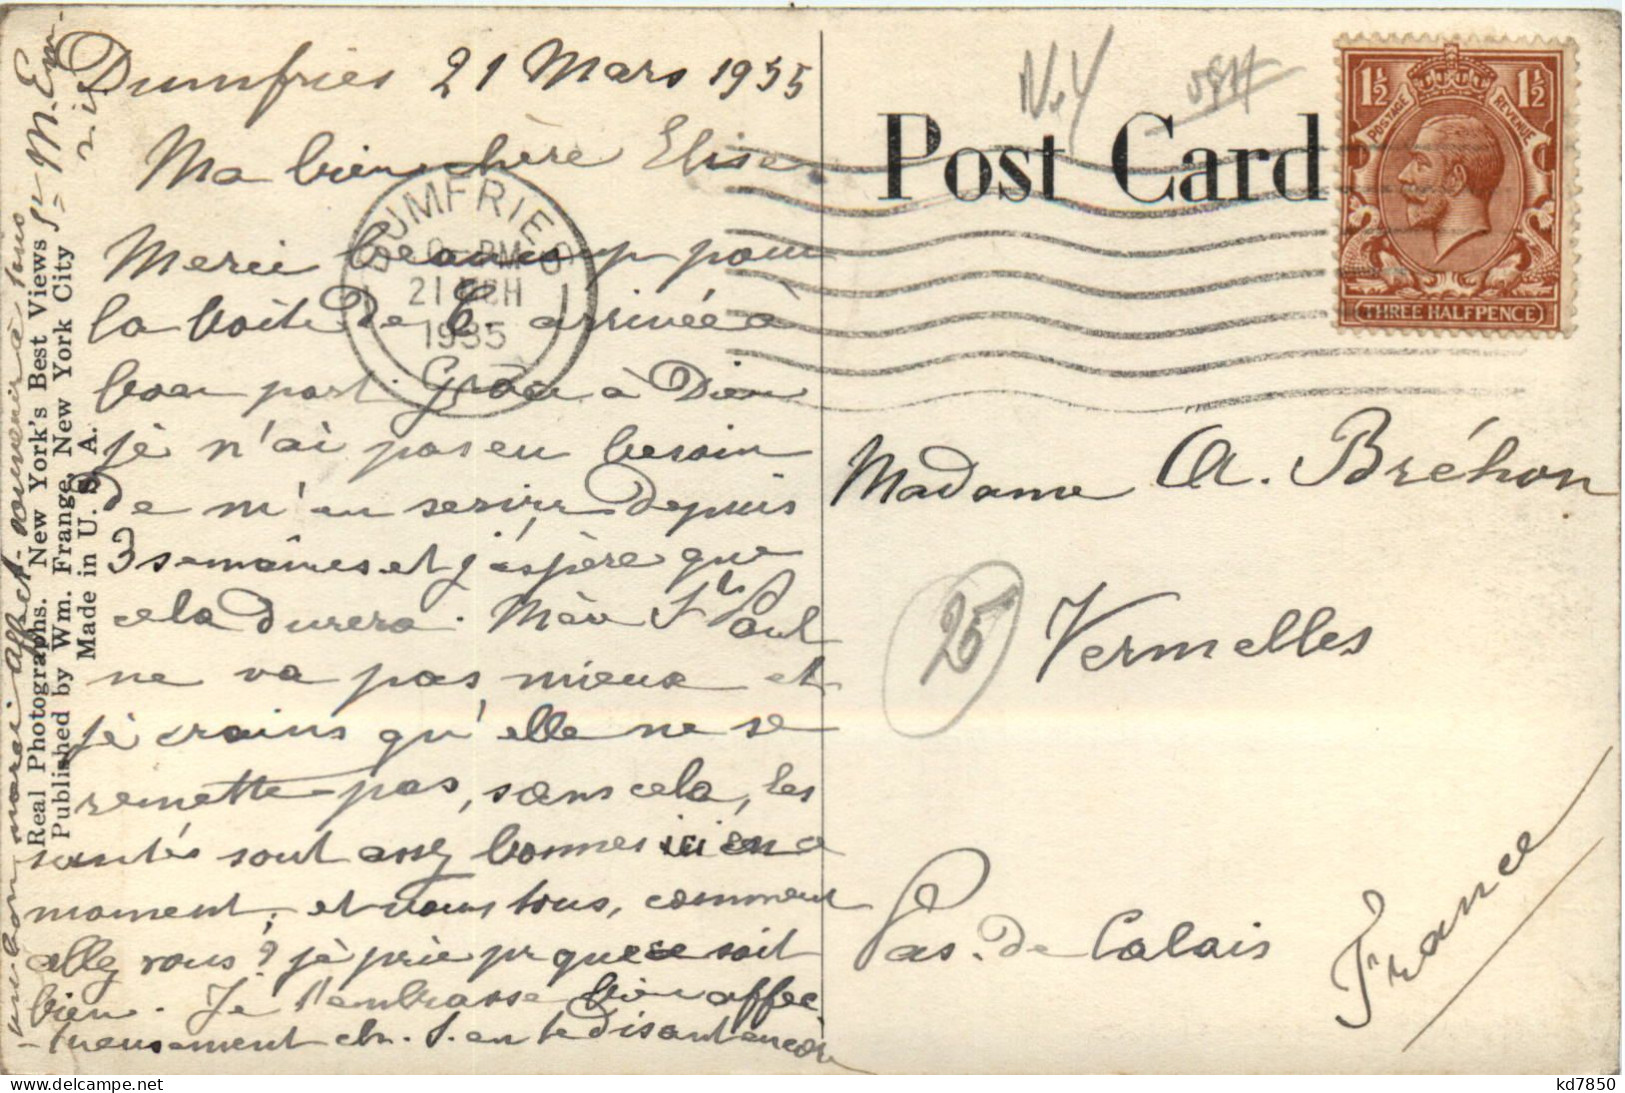 Dumfries 21 Mars 1935
Ma bien chère Elise
Merci beaucoup pour
la boîte de C. arrivée à
bon port. Grâce à Dieu
je n'ai pas eu besoin
de m'en servir depuis
3 semaines et j'espère que
cela durera. Mère St Paul
ne va pas mieux et
je crains qu'elle ne se
remette pas, sans cela, les
santés sont assez bonnes ici en ce
moment, et vous tous, comment
allez vous? je prie pr que ce soit
bien. Je t'embrasse bien affec
-tueusement chr. S. en te disant encore
un bon merci affect. souvenir à tous
Sr M. Em
Real Photographs. New York's Best Views
Published by Wm. Frange, New York City
Made in U. S. A.
DUMFRIES
PM
21 MCH
1935
N.Y
USA
Post Card
1½ 1½
POSTAGE REVENUE
THREE HALFPENCE
Madame A. Bréhon
25
Vermelles
Pas. de Calais
France
kd7850